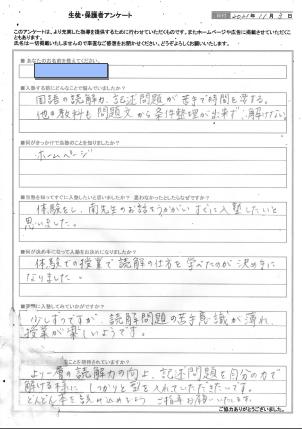 生徒・保護者アンケート
2021年11月3日
このアンケートは、より充実した指導を提供するために行わせていただくものです。またホームページや広告に掲載させていただくこともありますが
氏名は一切掲載いたしませんので率直なご感想をお聞かせください。どうぞよろしくお願いします。
■あなたのお名前を教えてください。
■入塾する前にどんなことで悩んでいましたか?
国語の読解力、記述問題が苦手で時間を要する。
他の教科も問題文から条件整理が出来ず、解けない
■何がきっかけで当塾のことを知りましたか?
ホームページ
■当塾を知ってすぐに入塾したいと思いましたか? 思わなかったとしたらなぜですか?
体験をし、南先生のお話をうかがい、すぐに入塾したいと
思いました。
■何が決め手になって入塾をお決めになりましたか?
体験での授業で読解の仕方を学べたのが決め手に
なりました
■実際に入塾してみていかがですか?
少しずつですが、読解問題の苦手意識が薄れ、
授業が楽しいようです。
ことを期待されていますか?
より一層の読解力の向上、記述問題を自分の力で
解ける様に しっかりと型を入れていただきたいです。
どんどん本を読み込めるよう ご指導お願いいたします。
ご協力ありがとうございました。